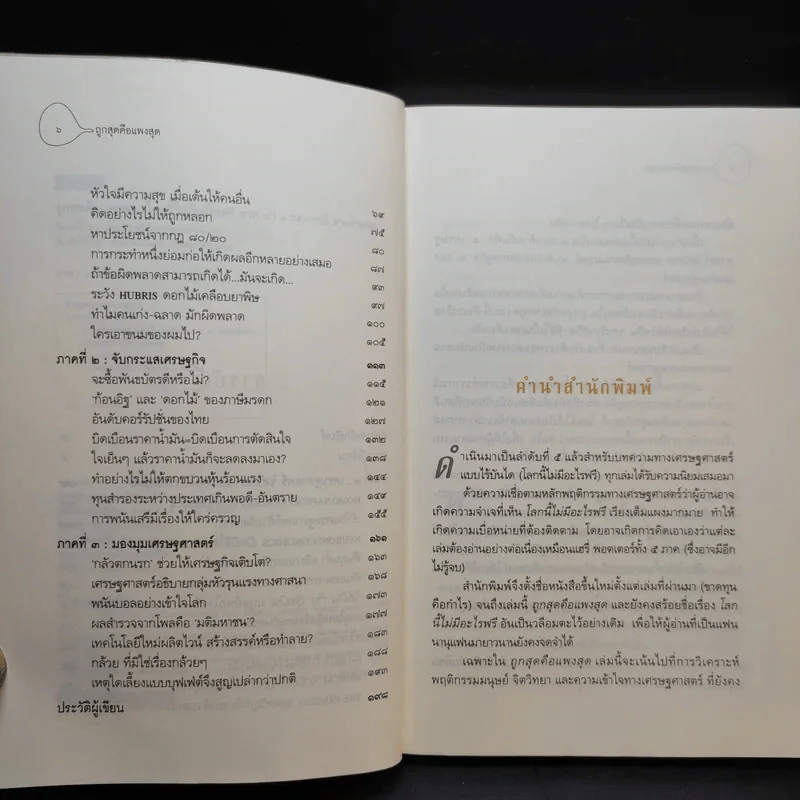 ๖ ถูกสุดคือแพงสุด
หัวใจมีความสุข เมื่อเต้นให้คนอื่น ๖๙
คิดอย่างไรไม่ให้ถูกหลอก ๗๕
หาประโยชน์จากกฎ ๘๐/๒๐ ๘๐
การกระทำหนึ่งย่อมก่อให้เกิดผลอีกหลายอย่างเสมอ ๘๗
ถ้าข้อผิดพลาดสามารถเกิดได้...มันจะเกิด... ๙๓
ระวัง HUBRIS ดอกไม้เคลือบยาพิษ ๙๗
ทำไมคนเก่ง-ฉลาด มักผิดพลาด ๑๐๐
ใครเอาขนมของผมไป? ๑๐๕
ภาคที่ ๒ : จับกระแสเศรษฐกิจ ๑๑๓
จะซื้อพันธบัตรดีหรือไม่? ๑๑๕
'ก้อนอิฐ' และ 'ดอกไม้' ของภาษีมรดก ๑๒๑
อันดับคอร์รัปชั่นของไทย ๑๒๗
บิดเบือนราคาน้ำมัน=บิดเบือนการตัดสินใจ ๑๓๒
ใจเย็นๆ แล้วราคาน้ำมันก็จะลดลงมาเอง? ๑๓๘
ทำอย่างไรไม่ให้ตกขบวนหุ้นร้อนแรง ๑๔๔
ทุนสำรองระหว่างประเทศเกินพอดี-อันตราย ๑๔๙
การพนันเสรีมีเรื่องให้ใคร่ครวญ ๑๕๕
ภาคที่ ๓ : มองมุมเศรษฐศาสตร์ ๑๖๑
'กลัวตกนรก' ช่วยให้เศรษฐกิจเติบโต? ๑๖๓
เศรษฐศาสตร์อธิบายกลุ่มหัวรุนแรงทางศาสนา ๑๖๘
พนันบอลอย่างเข้าใจโลก ๑๗๓
ผลสำรวจจากโพลคือ 'มติมหาชน' ๑๗๗
เทคโนโลยีใหม่ผลิตไวน์ สร้างสรรค์หรือทำลาย? ๑๘๓
กล้วย ที่มิใช่เรื่องกล้วยๆ ๑๘๘
เหตุใดเลี้ยงแบบบุฟเฟ่ต์จึงสูญเปล่ากว่าปกติ ๑๙๓
ประวัติผู้เขียน ๑๙๘
คำนำสำนักพิมพ์
ดำเนินมาเป็นลำดับที่ ๕ แล้วสำหรับบทความทางเศรษฐศาสตร์
แบบไร้บันได (โลกนี้ไม่มีอะไรฟรี) ทุกเล่มได้รับความนิยมเสมอมา
ด้วยความเชื่อตามหลักพฤติกรรมทางเศรษฐศาสตร์ว่าผู้อ่านอาจ
เกิดความจำเจที่เห็น โลกนี้ไม่มีอะไรฟรี เรียงเต็มแผงมากมาย ทำให้
เกิดความเบื่อหน่ายที่ต้องติดตาม โดยอาจเกิดการคิดเอาเองว่าแต่ละ
เล่มต้องอ่านอย่างต่อเนื่องเหมือนแฮรี่ พอตเตอร์ทั้ง ๕ ภาค (ซึ่งอาจมีอีก
ไม่รู้จบ)
สำนักพิมพ์จึงตั้งชื่อหนังสือขึ้นใหม่ตั้งแต่เล่มที่ผ่านมา (ขาดทุน
คือกำไร) จนถึงเล่มนี้ ถูกสุดคือแพงสุด และยังคงสร้อยชื่อเรื่อง โลก
นี้ไม่มีอะไรฟรี อันเป็นวลีอมตะไว้อย่างเดิม เพื่อให้ผู้อ่านที่เป็นแฟน
นานุแฟนมายาวนานยังคงจดจำได้
เฉพาะใน ถูกสุดคือแพงสุด เล่มนี้จะเน้นไปที่การวิเคราะห์
พฤติกรรมมนุษย์ จิตวิทยา และความเข้าใจทางเศรษฐศาสตร์ ที่ยังคง